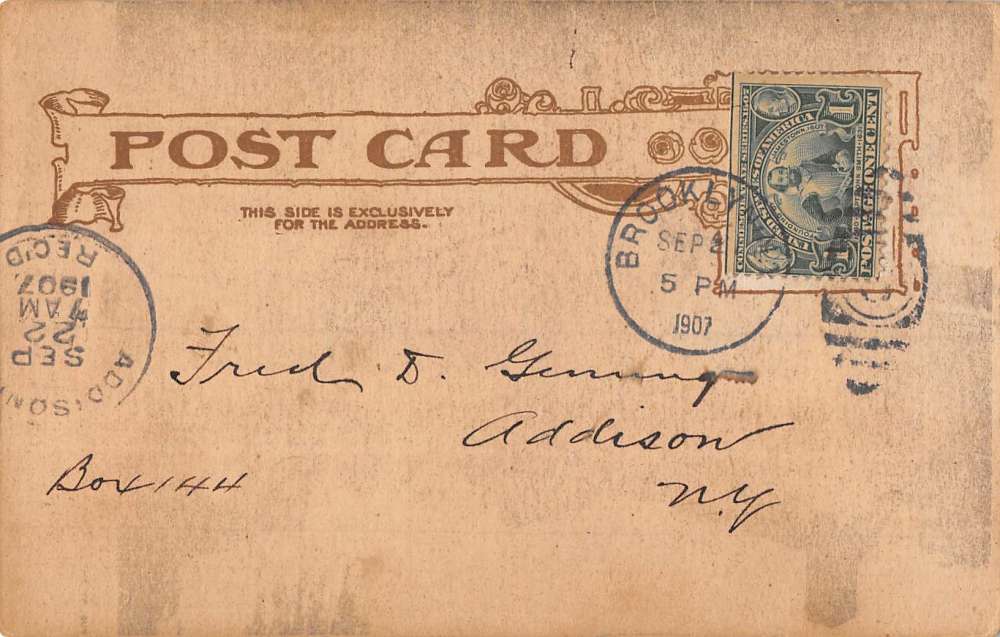 POST CARD
THIS SIDE IS EXCLUSIVELY
FOR THE ADDRESS.
COMMEMORATIVE SERIES 1907
UNITED STATES OF AMERICA
FOUNDING OF JAMESTOWN 1607
CAPTAIN JOHN SMITH
1 1
POSTAGE ONE CENT
BROOKLY
SEP 2
5 PM
1907
ADDISON
SEP
22
7 AM
1907
REC'D
Fred D.
Addison
Box 144
N.Y.